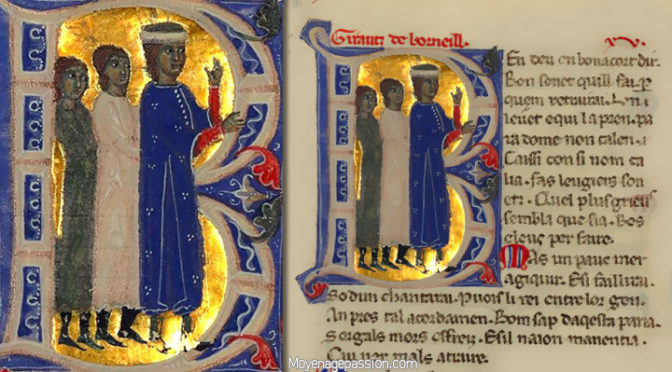 Girautz de borneill.
En deu en bona cort dir.
Bon sonet quill fai. P
quem retrairai. Un
leuet e qui la pren. pa
ra dome non talen.
Caissi con si nom ca
lia. fas leugiers son
etz. Quel plus grieus
sembla que sia. Bos
e leus per faire.
MAs un pauc mer
agiquir. E si faillirai
so dun chantarai. Puois li rei entre lor gen.
An pres tal acordamen. Bom sap daqesta paria.
mors esfrei. E sil naion manentia.
Cui mals atraire.
Moyenagepassion.com